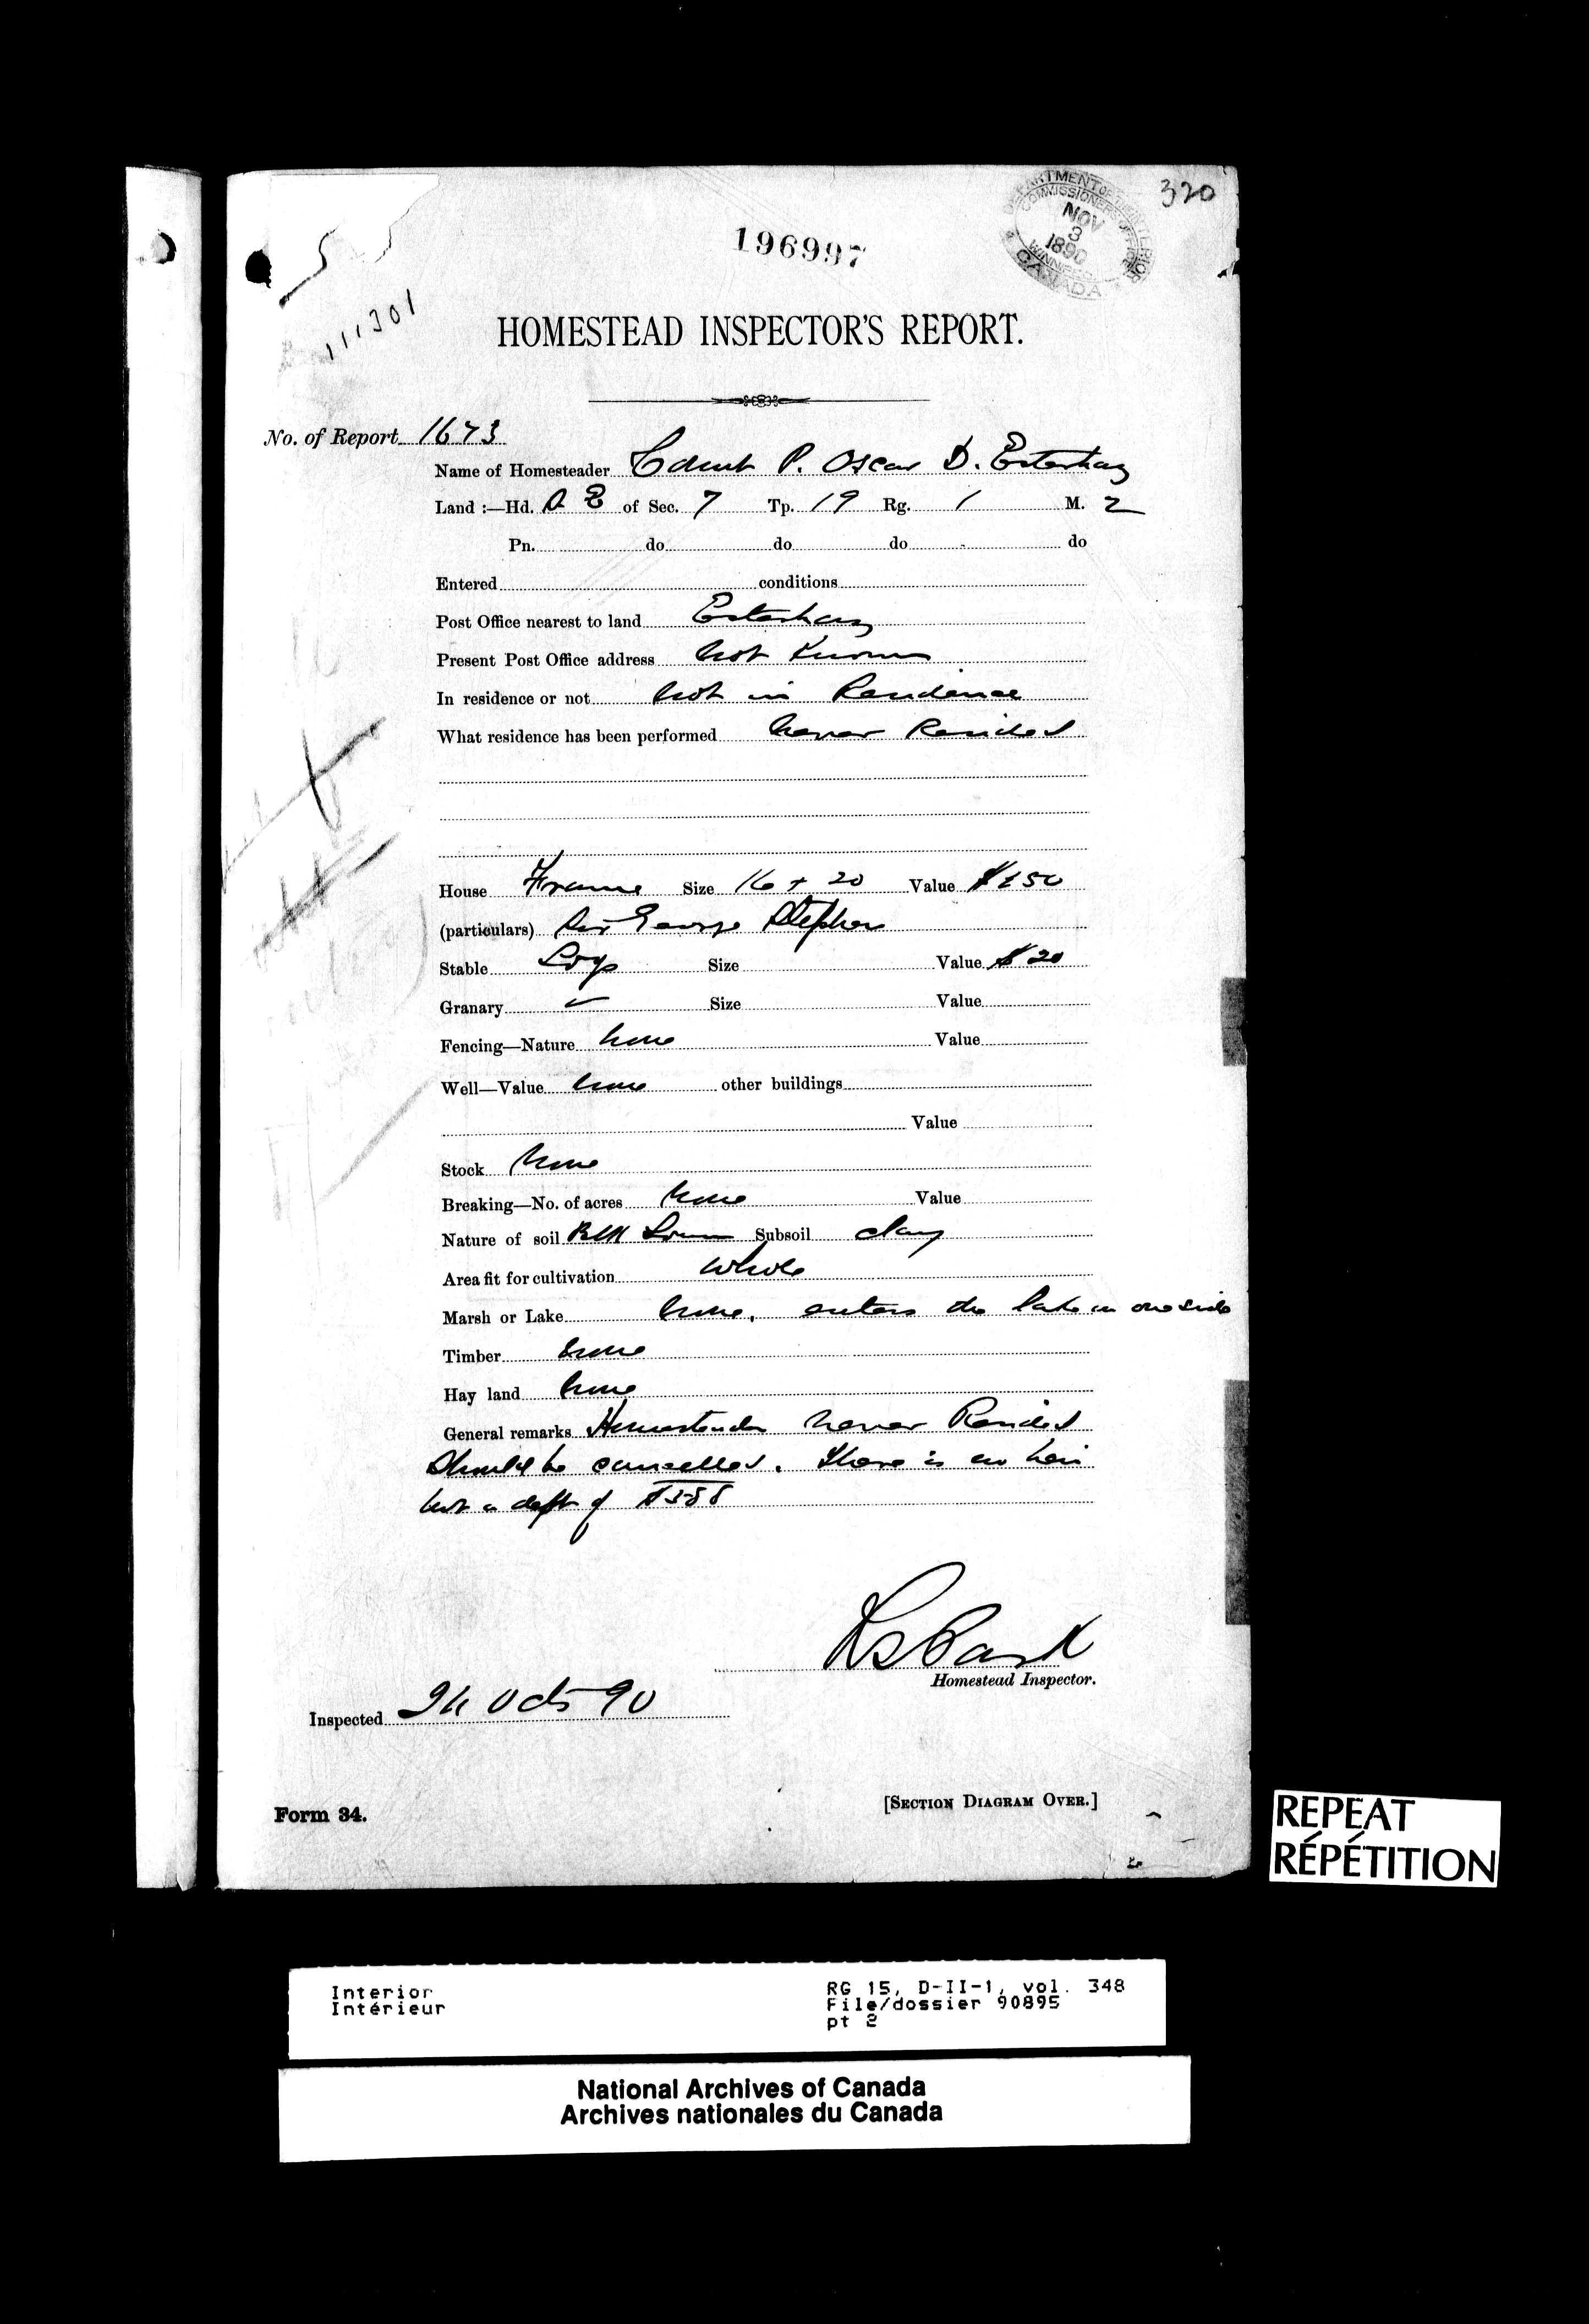 320
DEPARTMENT OF THE INTERIOR
COMMISSIONER'S OFFICE
NOV
3
1890
WINNIPEG
CANADA
196997
111301
HOMESTEAD INSPECTOR'S REPORT.
No. of Report 1673
Name of Homesteader Count P. Oscar D. Esterhazy
Land :—Hd. S E of Sec. 7 Tp. 19 Rg. 1 M. 2
Pn. do do do do
Entered conditions
Post Office nearest to land Esterhazy
Present Post Office address Not Known
In residence or not Not in Residence
What residence has been performed Never Resided
House Frame Size 16 + 20 Value $150
(particulars) Sir George Stephen
Stable Logs Size Value $20
Granary Size Value
Fencing—Nature None Value
Well—Value None other buildings
Value
Stock None
Breaking—No. of acres None Value
Nature of soil Blk Loam Subsoil Clay
Area fit for cultivation Whole
Marsh or Lake None, enters the lake on one side
Timber None
Hay land None
General remarks Homesteader Never Resided
Should be cancelled. There is no
but a of
Homestead Inspector.
Inspected 24 Oct 90
Form 34.
[SECTION DIAGRAM OVER.]
REPEAT
RÉPÉTITION
Interior
Intérieur
RG 15, D-II-1, vol. 348
File/dossier 90895
pt 2
National Archives of Canada
Archives nationales du Canada